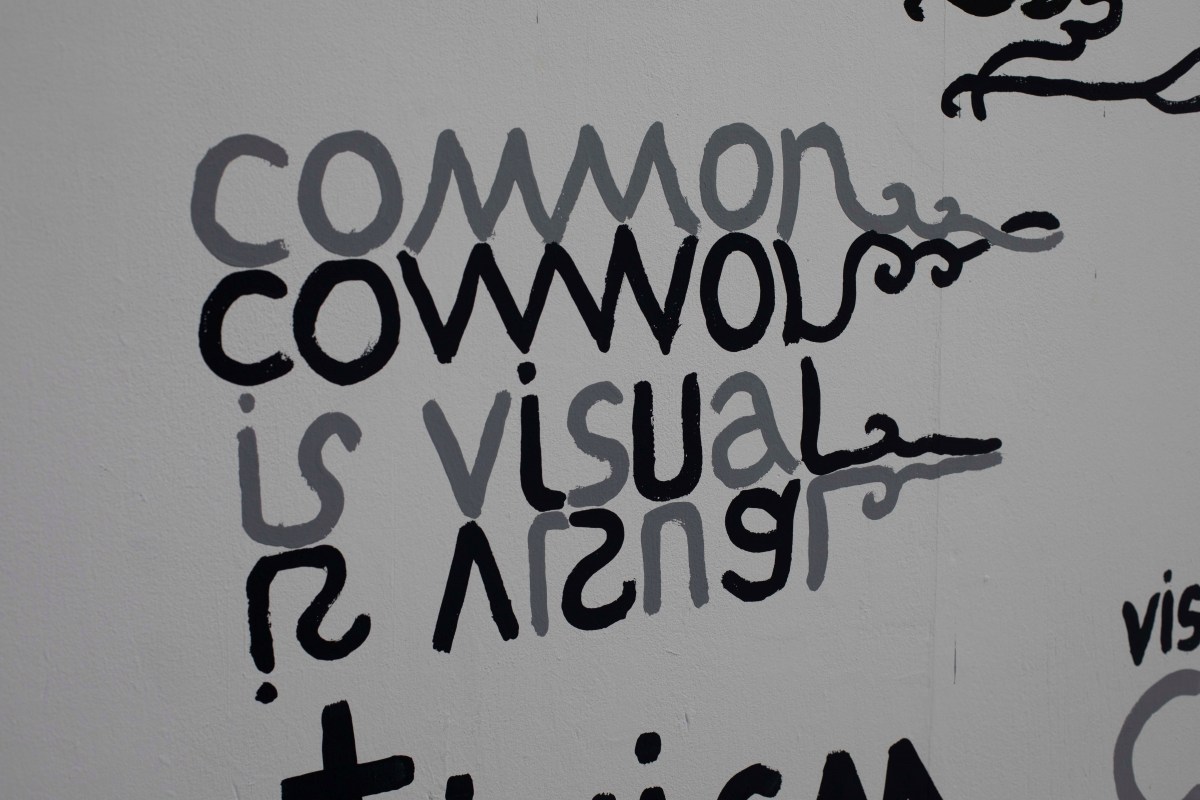 common
common
is visual
is visual
vis